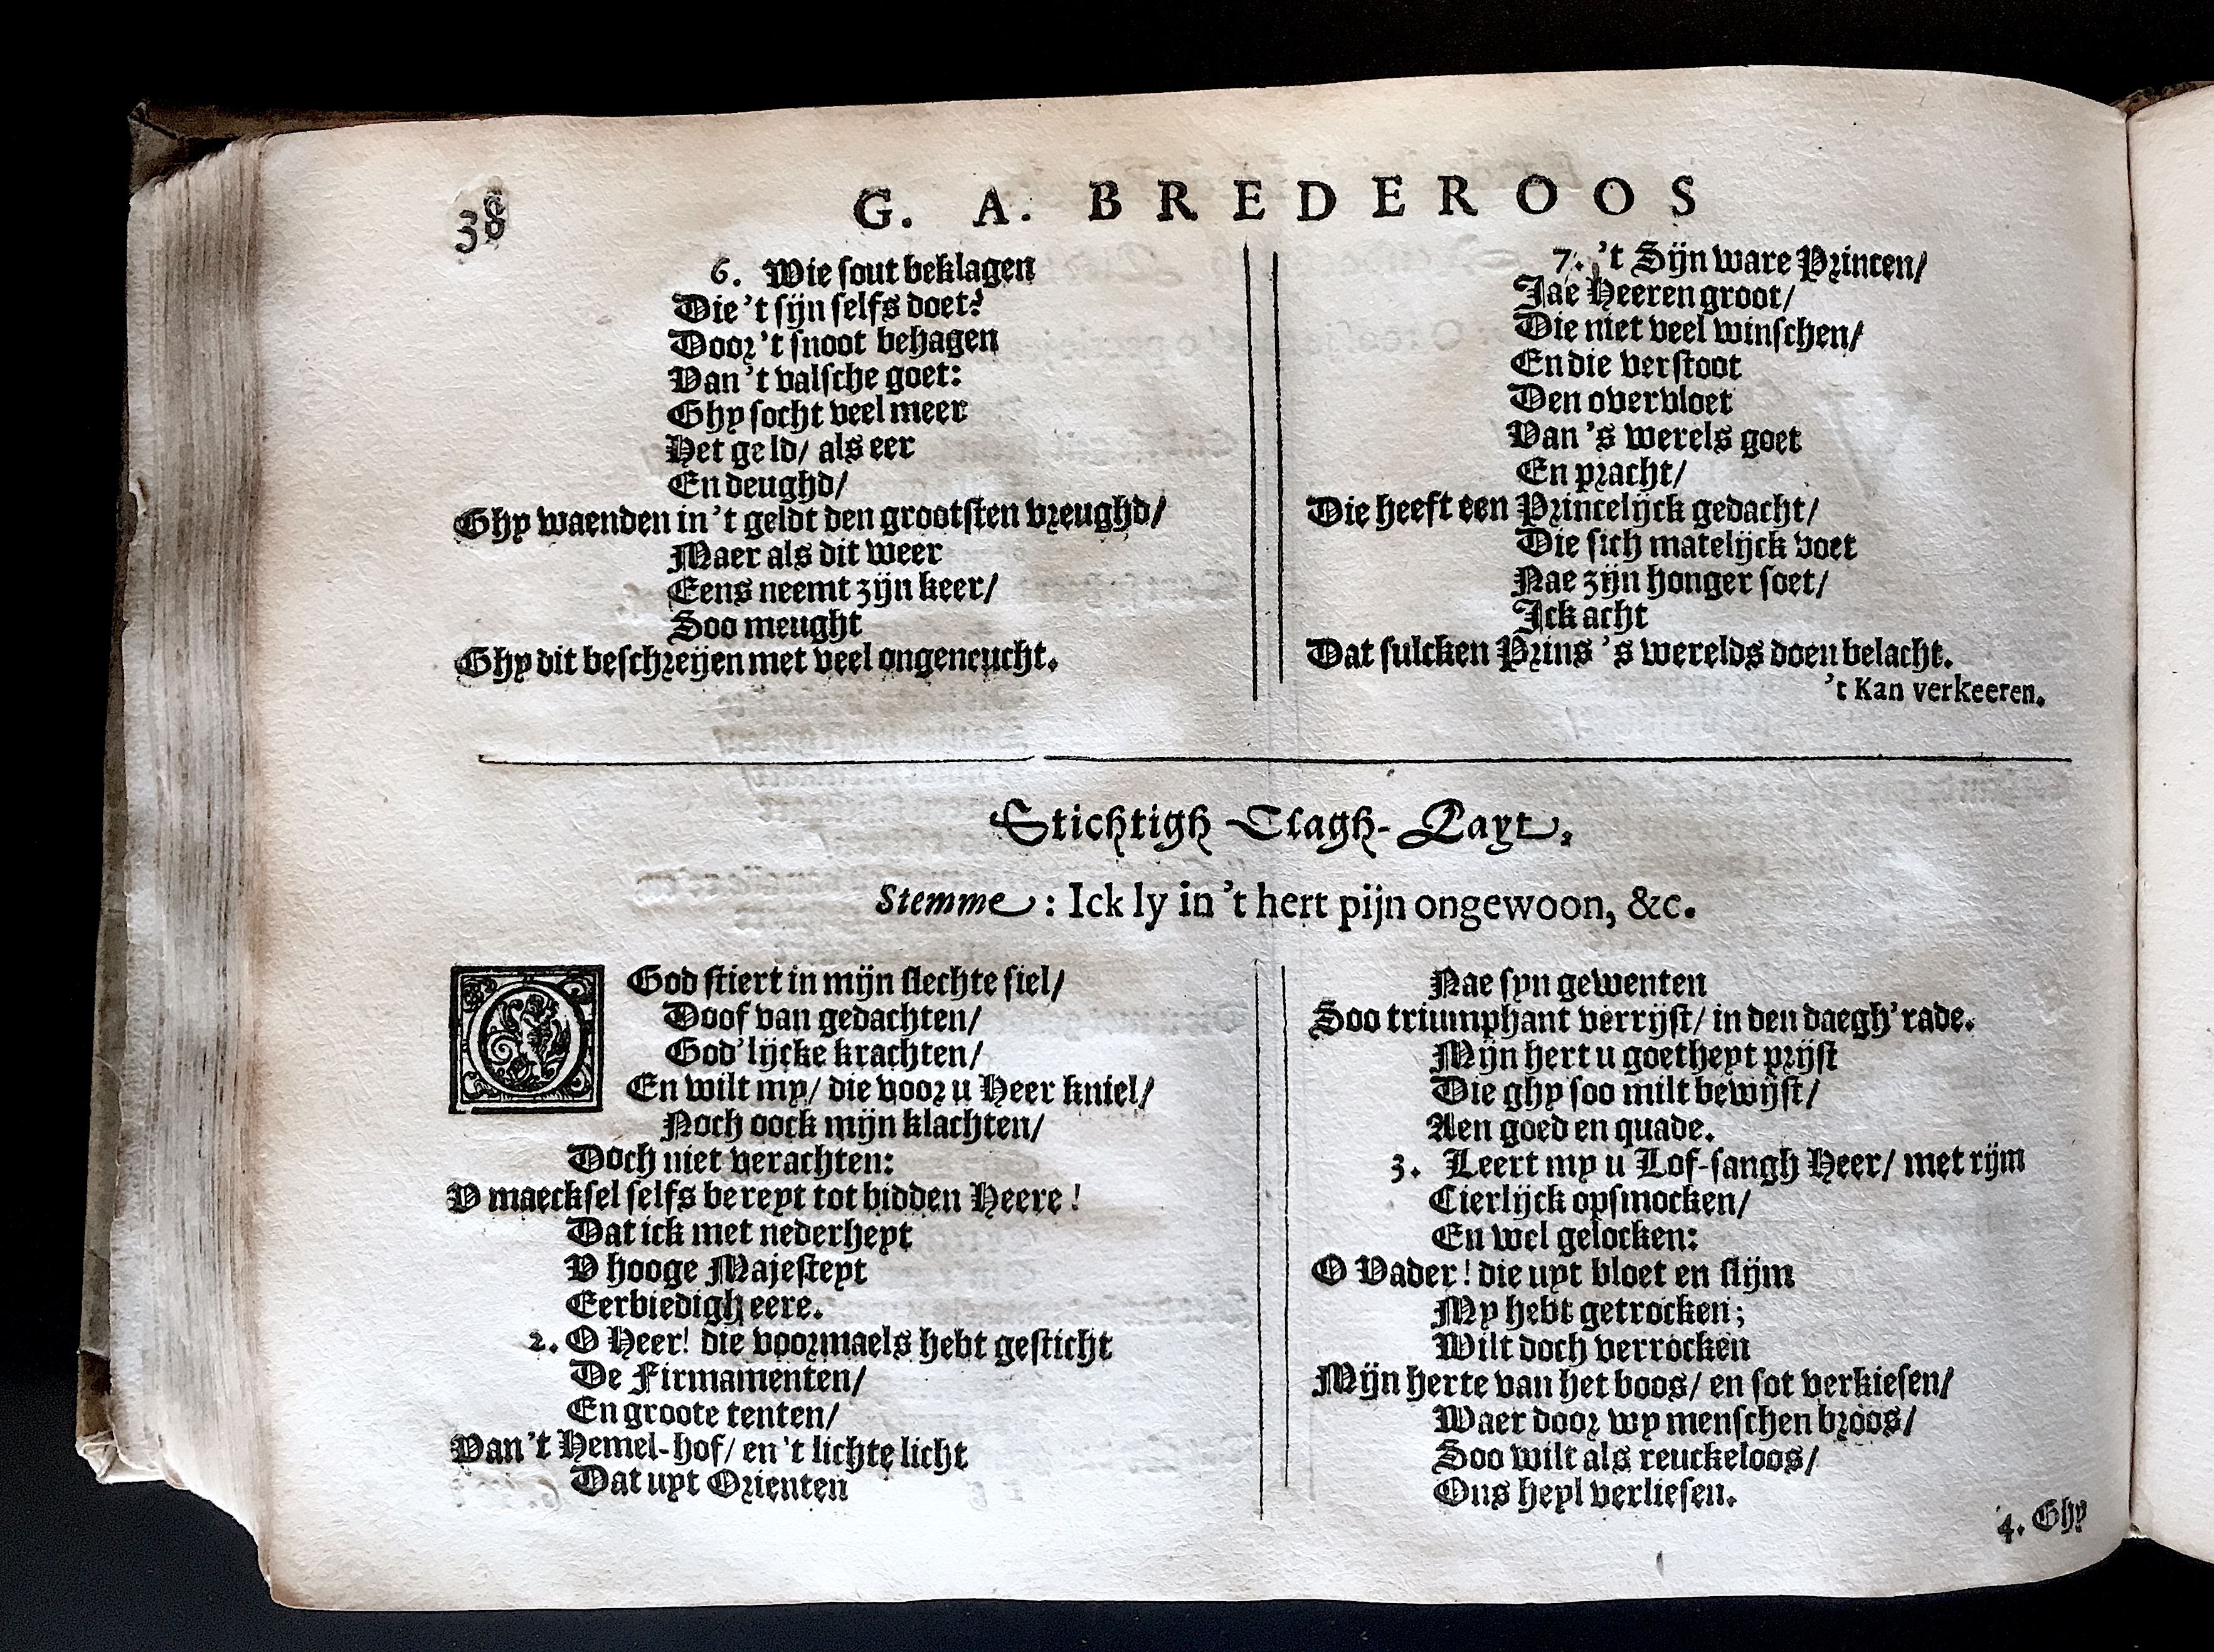 38
G. A. BREDEROOS
6. Wie sout beklagen
Die 't sijn selfs doet?
Door 't snoot behagen
Van 't valsche goet:
Ghy socht veel meer
Het geld/ als eer
En deughd/
Ghy waenden in 't geldt den grootsten vreughd/
Maer als dit weer
Eens neemt zijn keer/
Soo meught
Ghy dit beschreijen met veel ongeneucht.
7. 't Sijn ware Princen/
Jae Heeren groot/
Die niet veel winschen/
En die verstoot
Den overvloet
Van 's werels goet
En pracht/
Die heeft een Princelijck gedacht/
Die sich matelijck voet
Nae zijn honger soet/
Ick acht
Dat sulcken Prins 's werelds doen belacht.
't Kan verkeeren.
Stichtigh Clagh-Layt.
Stemme: Ick ly in 't hert pijn ongewoon, &c.
O God stiert in mijn slechte siel/
Doof van gedachten/
God'lijcke krachten/
En wilt my/ die voor u Heer kniel/
Noch oock mijn klachten/
Doch niet verachten:
V maecksel selfs bereyt tot bidden Heere!
Dat ick met nederheyt
V hooge Majesteyt
Eerbiedigh eere.
2. O Heer! die voormaels hebt gesticht
De Firmamenten/
En groote tenten/
Van 't Hemel-hof/ en 't lichte licht
Dat uyt Orienten
Nae syn gewenten
Soo triumphant verrijst/ in den daegh'rade.
Mijn hert u goetheyt prijst
Die ghy soo milt bewijst/
Aen goed en quade.
3. Leert my u Lof-sangh Heer/ met rijm
Cierlijck opsmocken/
En wel gelocken:
O Vader! die uyt bloet en slijm
My hebt getrocken;
Wilt doch verrocken
Mijn herte van het boos/ en sot verkiesen/
Waer door wy menschen broos/
Soo wilt als reuckeloos/
Ons heyl verliesen.
4. Ghy